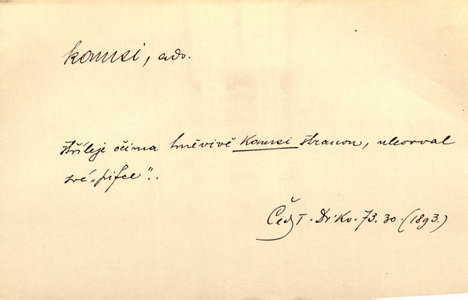 kamsi, adv.
střílеje očima hněvivě kamsi stranou, ukorval
své „pifce".
Čech T. Drkv. 73. 30. (1893.)